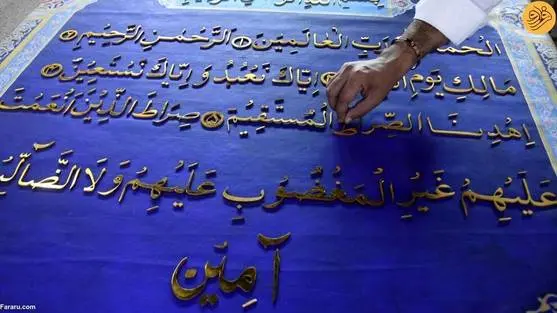 الْحَمْدُ رَبِّ الْعَالَمِينَ الرَّحْمَٰنِ الرَّحِيمِ
مَالِكِ يَوْمِ إِيَّاكَ نَعْبُدُ وَ إِيَّاكَ نَسْتَعِينُ
اِهْدِنَا الصِّرَاطَ الْمُسْتَقِيمَ صِرَاطَ الَّذِينَ أَنْعَمْتَ
عَلَيْهِمْ غَيْرِ الْمَغْضُوبِ عَلَيْهِمْ وَلَا الضَّآلِّينَ
آمِيْن
Fararu.com